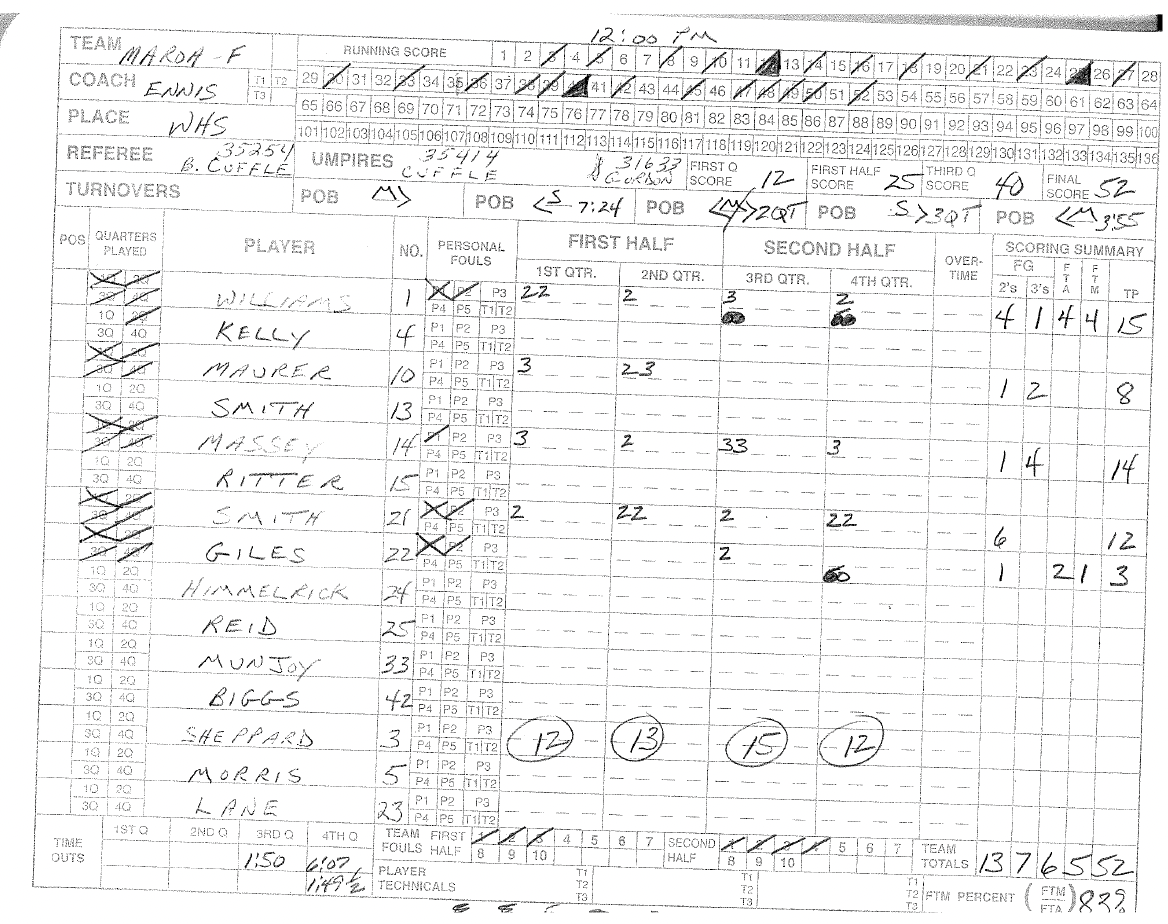 12:00 PM
TEAM MAROA-F RUNNING SCORE 1 2 3 4 5 6 7 8 9 10 11 12 13 14 15 16 17 18 19 20 21 22 23 24 25 26 27 28
COACH ENNIS T1 T2 T3 29 30 31 32 33 34 35 36 37 38 39 40 41 42 43 44 45 46 47 48 49 50 51 52 53 54 55 56 57 58 59 60 61 62 63 64
PLACE WHS 65 66 67 68 69 70 71 72 73 74 75 76 77 78 79 80 81 82 83 84 85 86 87 88 89 90 91 92 93 94 95 96 97 98 99 100
101 102 103 104 105 106 107 108 109 110 111 112 113 114 115 116 117 118 119 120 121 122 123 124 125 126 127 128 129 130 131 132 133 134 135 136
REFEREE 35254 B. CUFFLE UMPIRES 35414 CUFFLE 31633 FIRST Q SCORE 12 FIRST HALF SCORE 25 THIRD Q SCORE 40 FINAL SCORE 52
TURNOVERS POB M> POB <S 7:24 POB <M> 2QT POB S> 3QT POB <M 3:55
POS QUARTERS PLAYED PLAYER NO. PERSONAL FOULS FIRST HALF SECOND HALF OVER-TIME SCORING SUMMARY
1ST QTR. 2ND QTR. 3RD QTR. 4TH QTR. FG 2's 3's FTA FTM TP
WILLIAMS 1 P1 P2 P3 P4 P5 T1 T2 22 2 3 2 4 1 4 4 15
1Q 2Q 3Q 4Q KELLY 4 P1 P2 P3 P4 P5 T1 T2
MAURER 10 P1 P2 P3 P4 P5 T1 T2 3 23 1 2 8
1Q 2Q 3Q 4Q SMITH 13 P1 P2 P3 P4 P5 T1 T2
MASSEY 14 P1 P2 P3 P4 P5 T1 T2 3 2 33 3 1 4 14
1Q 2Q 3Q 4Q RITTER 15 P1 P2 P3 P4 P5 T1 T2
SMITH 21 P1 P2 P3 P4 P5 T1 T2 2 22 2 22 6 12
3Q 4Q GILES 22 P1 P2 P3 P4 P5 T1 T2 2 1 2 1 3
1Q 2Q 3Q 4Q HIMMELRICK 24 P1 P2 P3 P4 P5 T1 T2
1Q 2Q 3Q 4Q REID 25 P1 P2 P3 P4 P5 T1 T2
1Q 2Q 3Q 4Q MUNJOY 33 P1 P2 P3 P4 P5 T1 T2
1Q 2Q 3Q 4Q BIGGS 42 P1 P2 P3 P4 P5 T1 T2
1Q 2Q 3Q 4Q SHEPPARD 3 P1 P2 P3 P4 P5 T1 T2 12 13 15 12
1Q 2Q 3Q 4Q MORRIS 5 P1 P2 P3 P4 P5 T1 T2
1Q 2Q 3Q 4Q LANE 23 P1 P2 P3 P4 P5 T1 T2
TIME OUTS 1ST Q 2ND Q 3RD Q 4TH Q TEAM FOULS FIRST HALF 1 2 3 4 5 6 7 8 9 10 SECOND HALF 1 2 3 4 5 6 7 8 9 10 TEAM TOTALS 13 7 6 5 52
1:50 6:07 1:49.2 PLAYER TECHNICALS T1 T2 T3 T1 T2 T3 T1 T2 T3 FTM PERCENT (FTM/FTA)